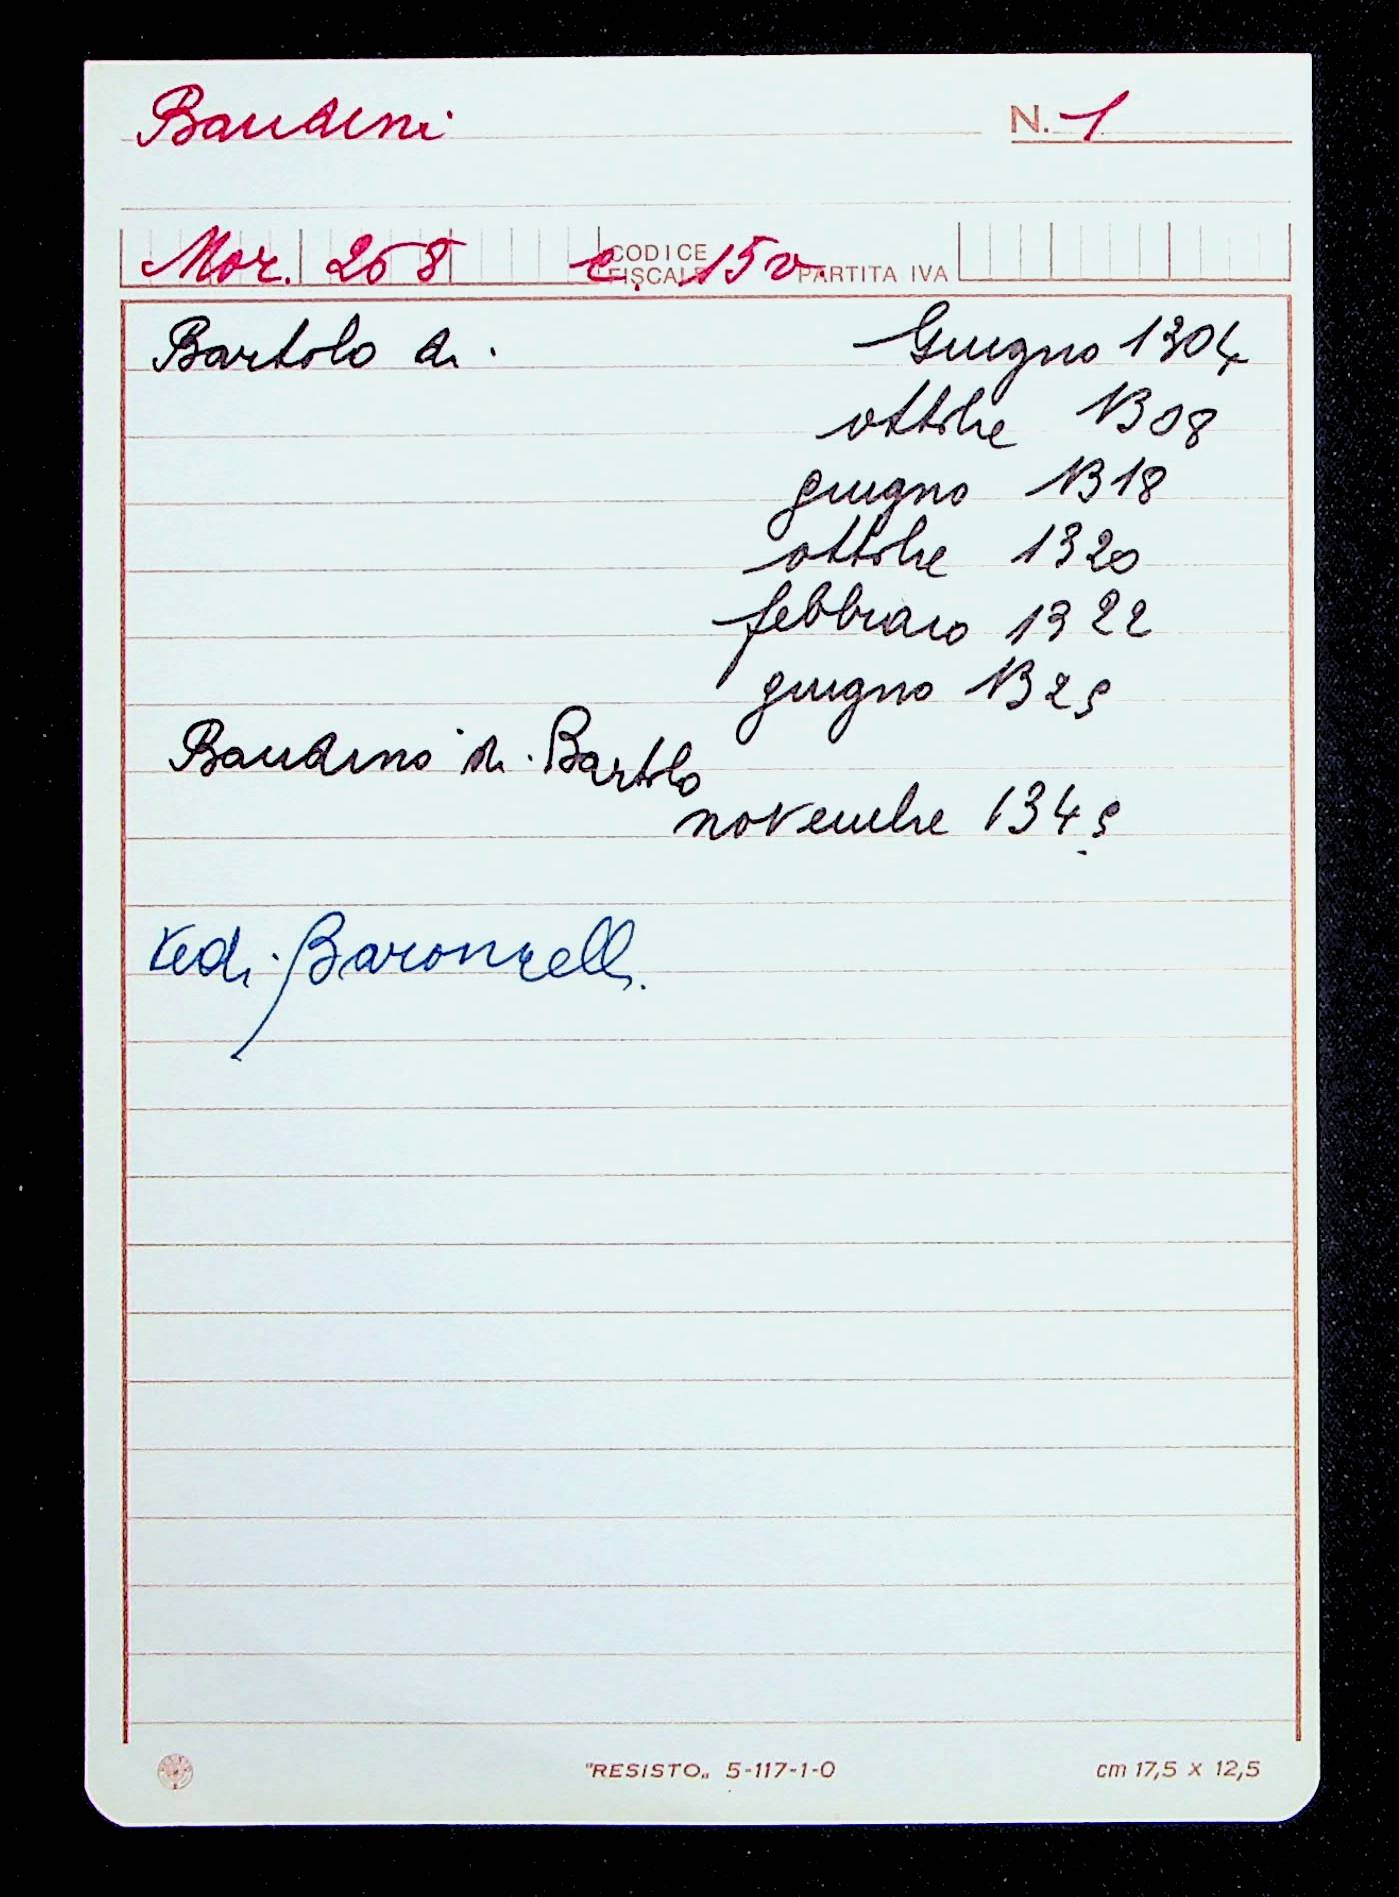 Bandini N. 1
Mor. 258 c. 15v CODICE FISCALE PARTITA IVA
Bartolo di Giugno 1304
ottobre 1308
giugno 1318
ottobre 1320
febbraio 1322
giugno 1325
Bandino di Bartolo
novembre 1345
Vedi Baroncelli
"RESISTO„ 5-117-1-0 cm 17,5 x 12,5